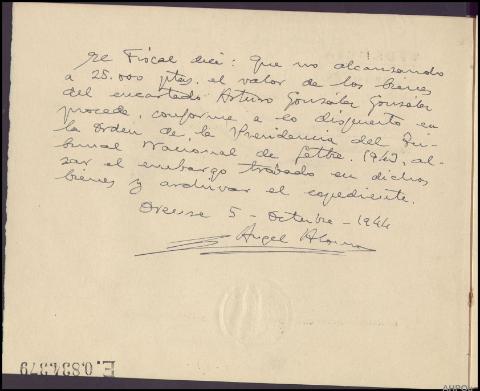 El Fiscal dice: que no alcanzando
a 25.000 ptas. el valor de los bienes
del encartado Arturo González González
procede, conforme a lo dispuesto en
la orden de la Presidencia del Tri-
bunal Nacional de 1943, al-
zar el embargo trabado en dichos
bienes y archivar el expediente.
Orense 5 - Octubre - 1944
Angel Alonso
E.0.834.379